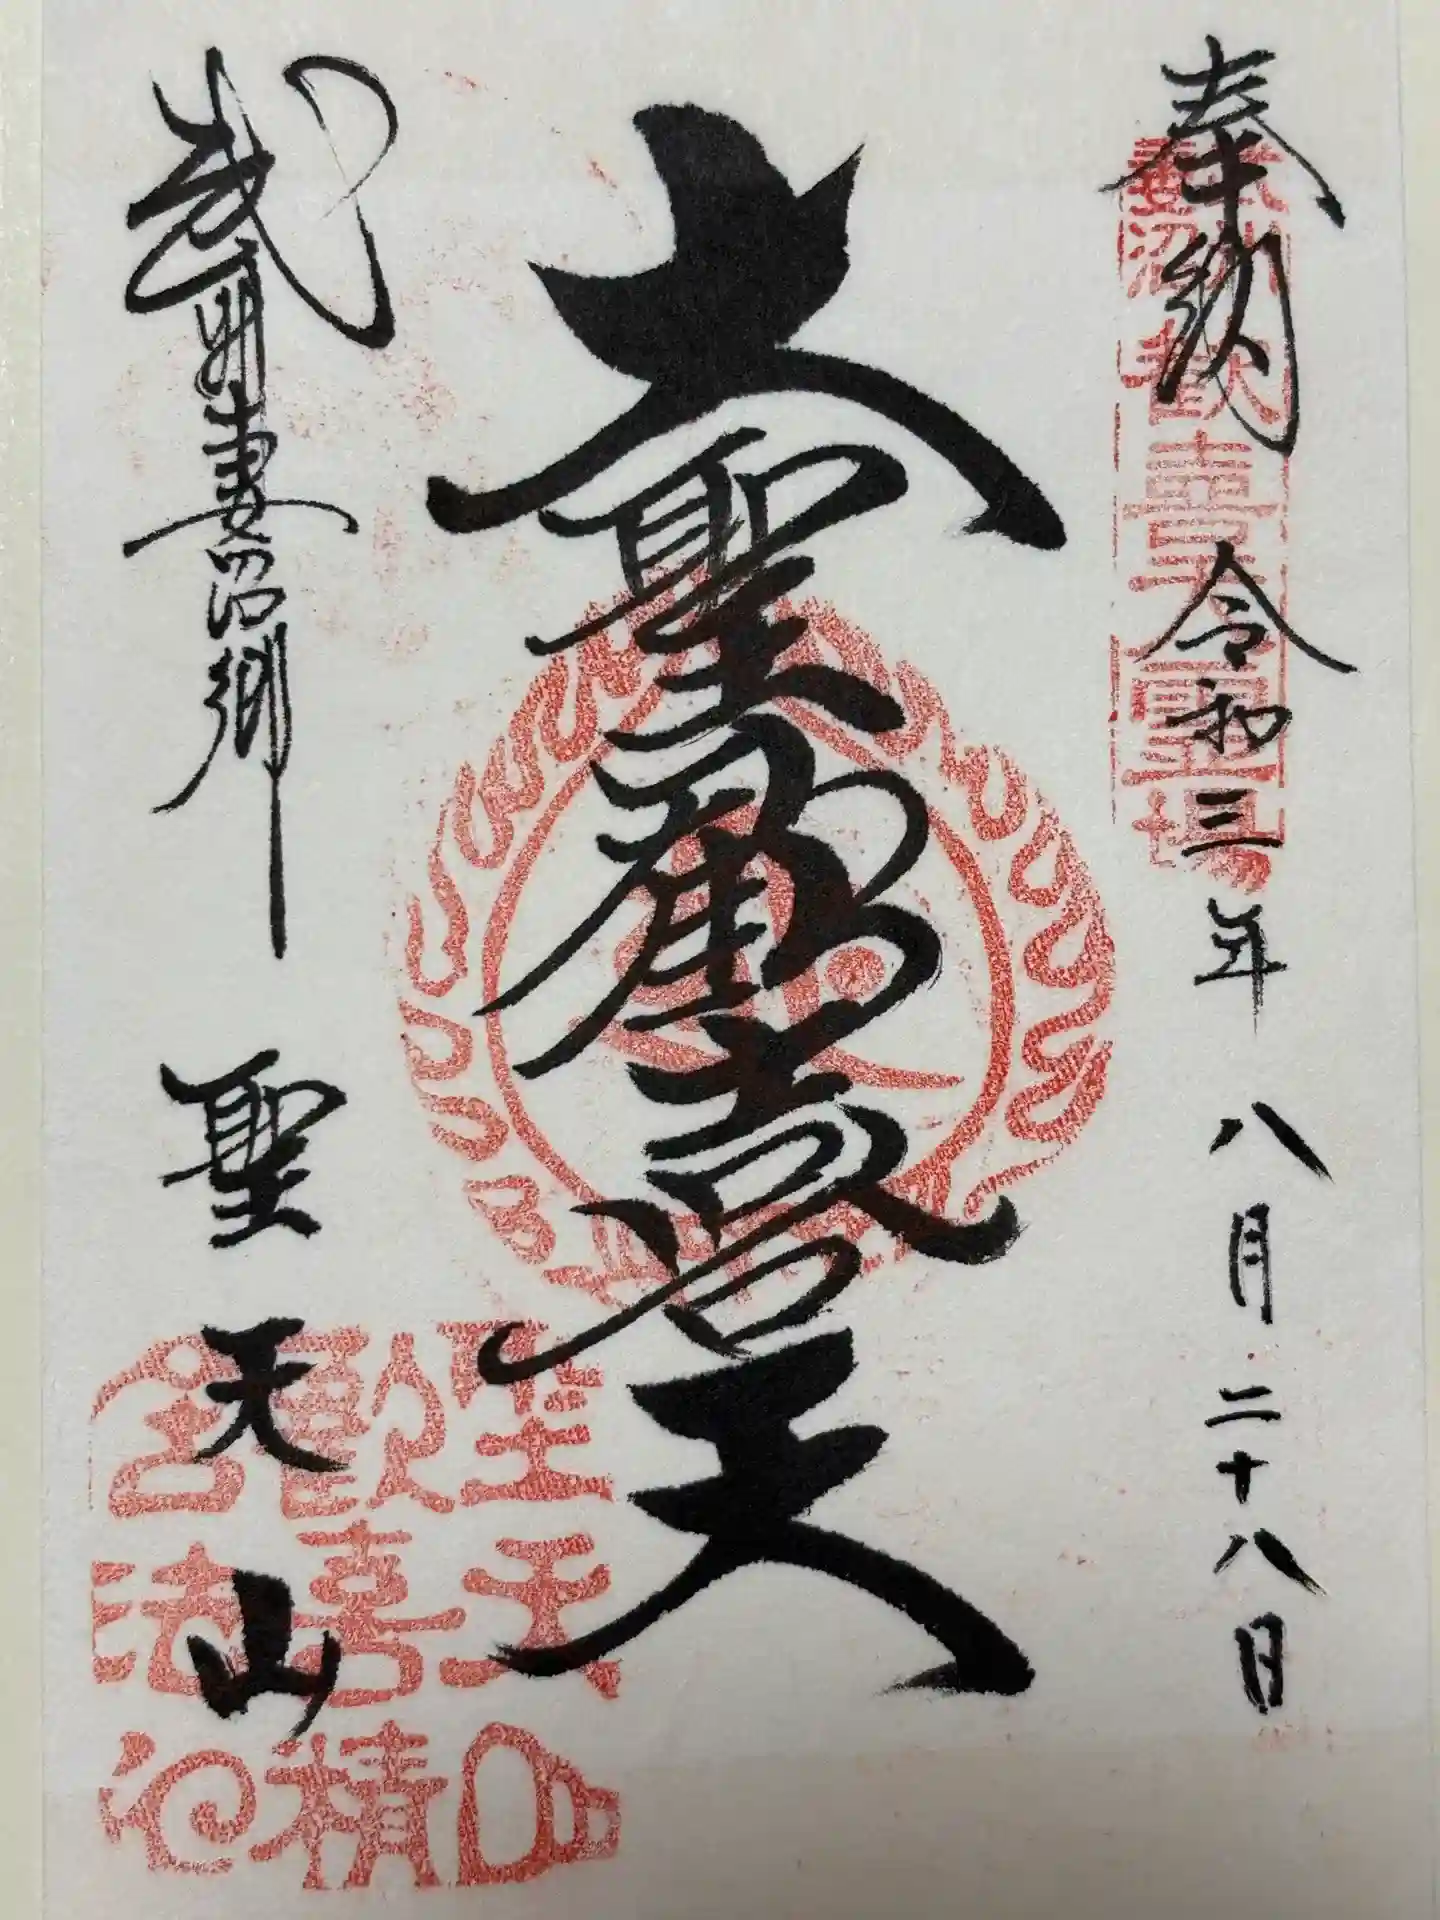 奉納 令和三年八月二十八日
武州妻沼歓喜天霊場
大聖歓喜天
武州妻沼郷 聖天山
聖天山
歓喜精
舎法印